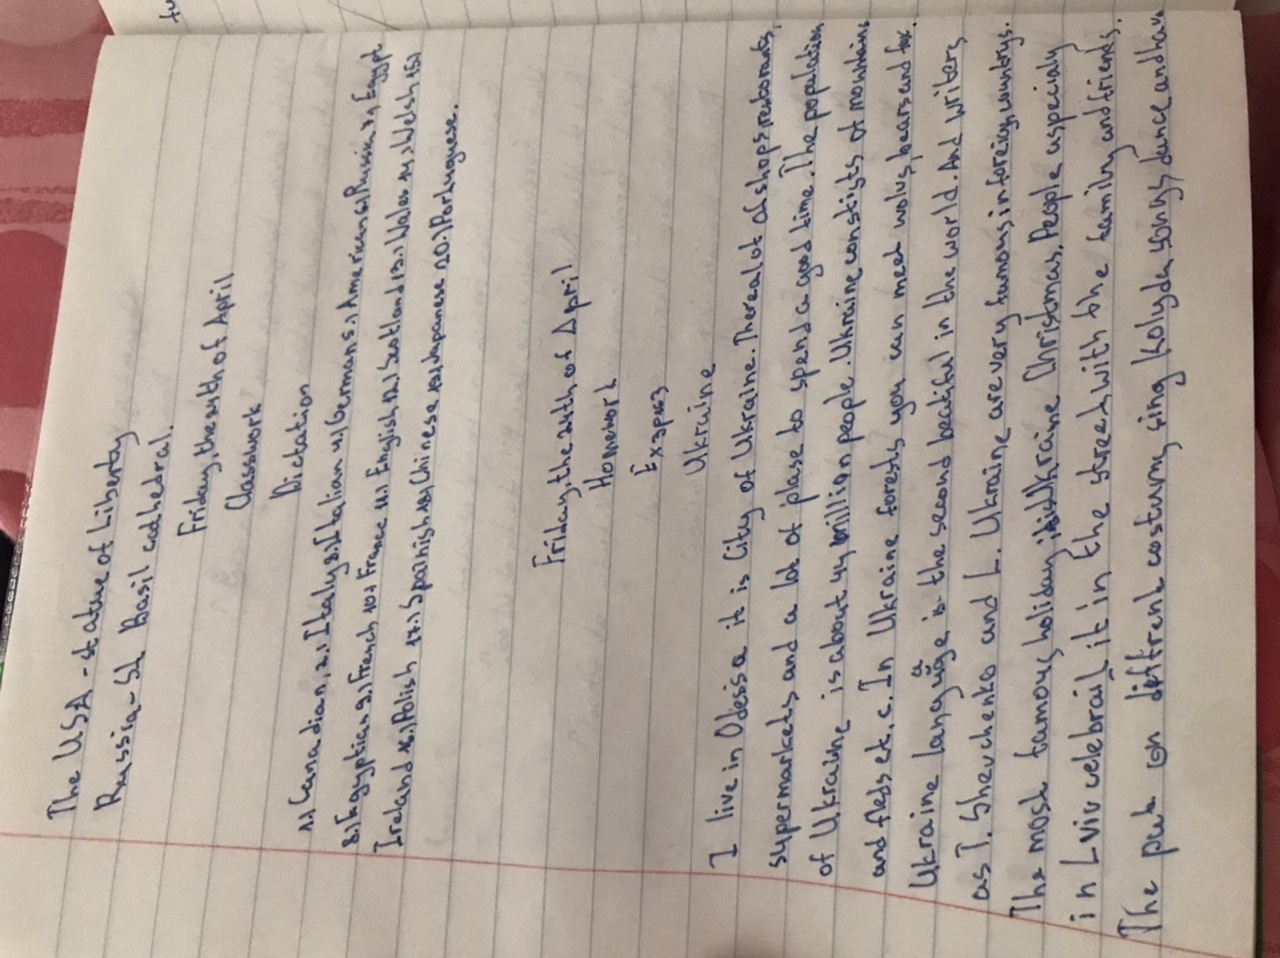 The USA - statue of Liberty
Russia - St Basil cathedral.
Friday, the 24th of April
Classwork
Dictation
1.) Canadian, 2.) Italy 3.) Italian 4.) German 5.) American 6.) Russia 7.) Egypt
8.) Egyptian 9.) French 10.) France 11.) English 12.) Scotland 13.) Wales 14.) Welsh 15.)
Ireland 16.) Polish 17.) Spanish 18.) Chinese 19.) Japanese 20.) Portuguese.
Friday, the 24th of April
Homework
Ex 3 p 63
Ukraine
I live in Odessa it is City of Ukraine. There a lot of shops, restorants,
supermarkets and a lot of plase to spend a good time. The population
of Ukraine is about 44 million people. Ukraine constists of mountains
and fleds et.c. In Ukraine forests you can meet wolvs, bears and fox
Ukraine language is the second beatiful in the world. And writers
as T. Shevchenko and L. Ukraine are very famous in foreign countrys.
The most famous holiday in Ukraine Christmas. People aspecialy
in Lviv celebrait it in the street with the family and friends.
The put on diffrent costums, sing Kolyda songs, dance and have